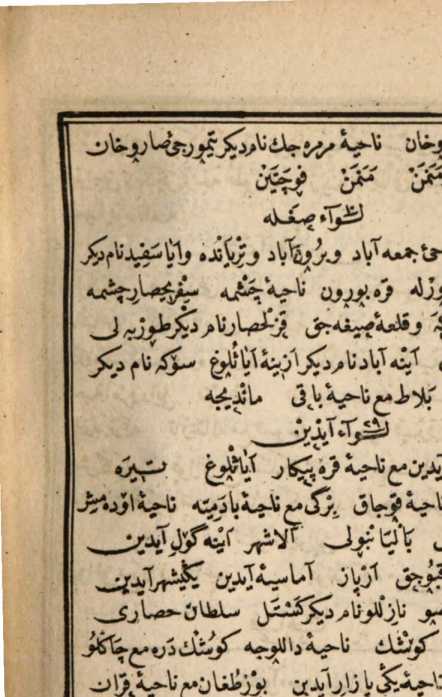 وخان ناحیهٔ مرمره جك نام دیکر تیمورجی صاروخان
مَنَمَنْ مَنَمَنْ فوچَتَینْ
لوآء صغله
جمعه آباد وبرُون آباد وتْرْیَانْده وآیاسَفِید نام دیکر
ورْله قره بورون ناحیهٔ چَشْمه سِفْریحِصار چشمه
وقلعهٔ صیغه جق قزلحصار نام دیکر طوزبه لی
آیْنه آباد نام دیکر از ینهٔ آیاثُلوغ سوْکه نام دیکر
بَلاط مع ناحیهٔ باقی مانْدِیجه
لوآء آیدین
آیدین مع ناحیهٔ قره پیکار آیاثْلوغ تیره
ناحیهٔ قوچاق برْکی مع ناحیهٔ بادَمِیّه ناحیهٔ اوْده میش
بَالْیَانْبولی آلاشهر آیْنه گوْل آیدین
آرْپاز آماسیهٔ آیدین یکْیشهر آیدین
نازِللو نام دیکر کَسْتَل سلطان حصاری
کوْشْك ناحیهٔ داللوجه کوشْك دَره مع چاکَلُو
ناحیهٔ یکی بازار آیدین بوْزطُغان مع ناحیهٔ قران